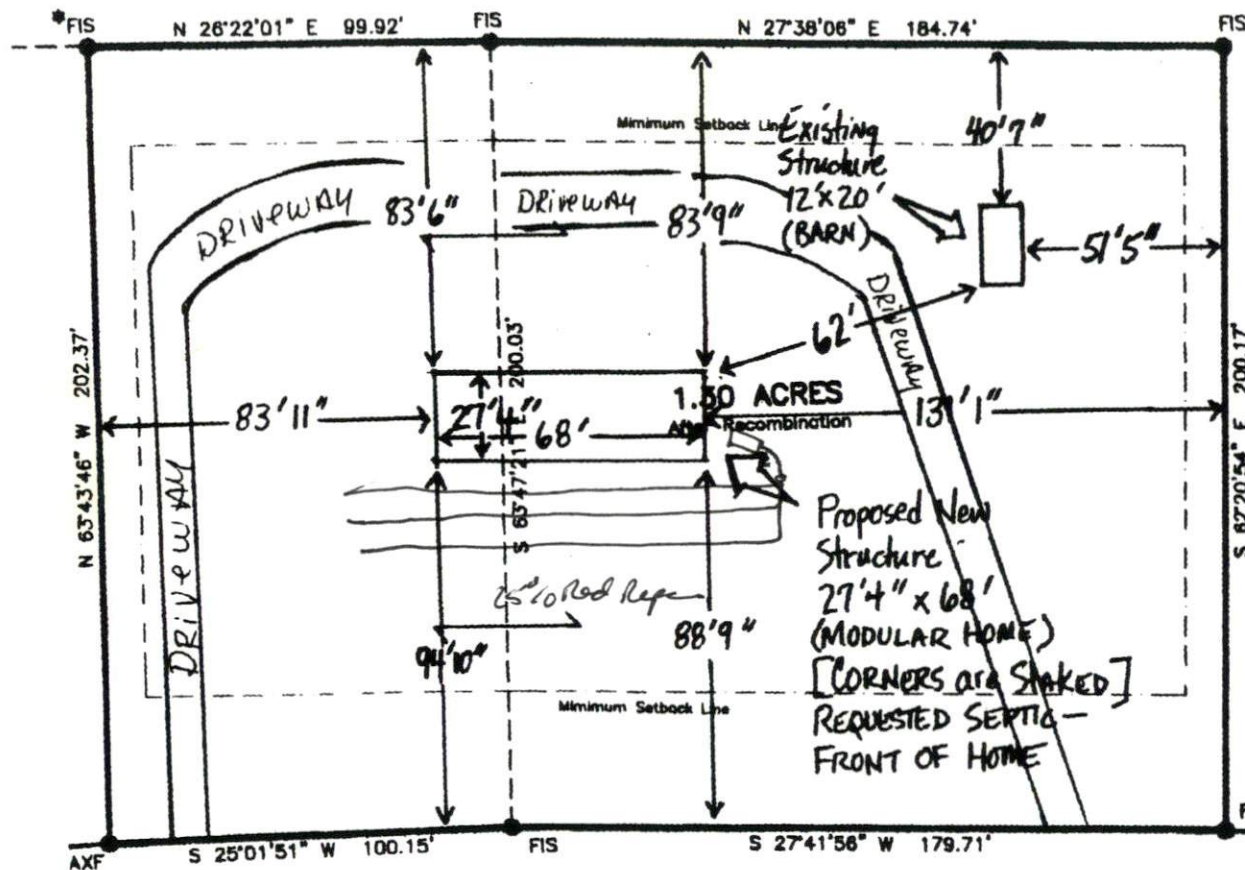 *FIS
N 26°22'01" E 99.92'
FIS
N 27°38'06" E 184.74'
FIS
Mimimum Setback Line
Existing
Structure
12'x20'
(BARN)
40'7"
DRiveWAY
83'6"
DRiveWAY
83'9"
51'5"
DRiveWAY
62'
N 63°43'46" W 202.37'
83'11"
27'4"
68'
S 63°47'21" E 200.03'
1.30 ACRES
After Recombination
131'1"
S 62°20'54" E 200.17'
DRiveWAY
Proposed New
Structure
27'4" x 68'
(MODULAR HOME)
[CORNERS are STAKED]
REQUESTED SEPTIC —
FRONT OF HOME
25% Red
94'10"
88'9"
Mimimum Setback Line
AXF
S 25°01'51" W 100.15'
FIS
S 27°41'56" W 179.71'
F